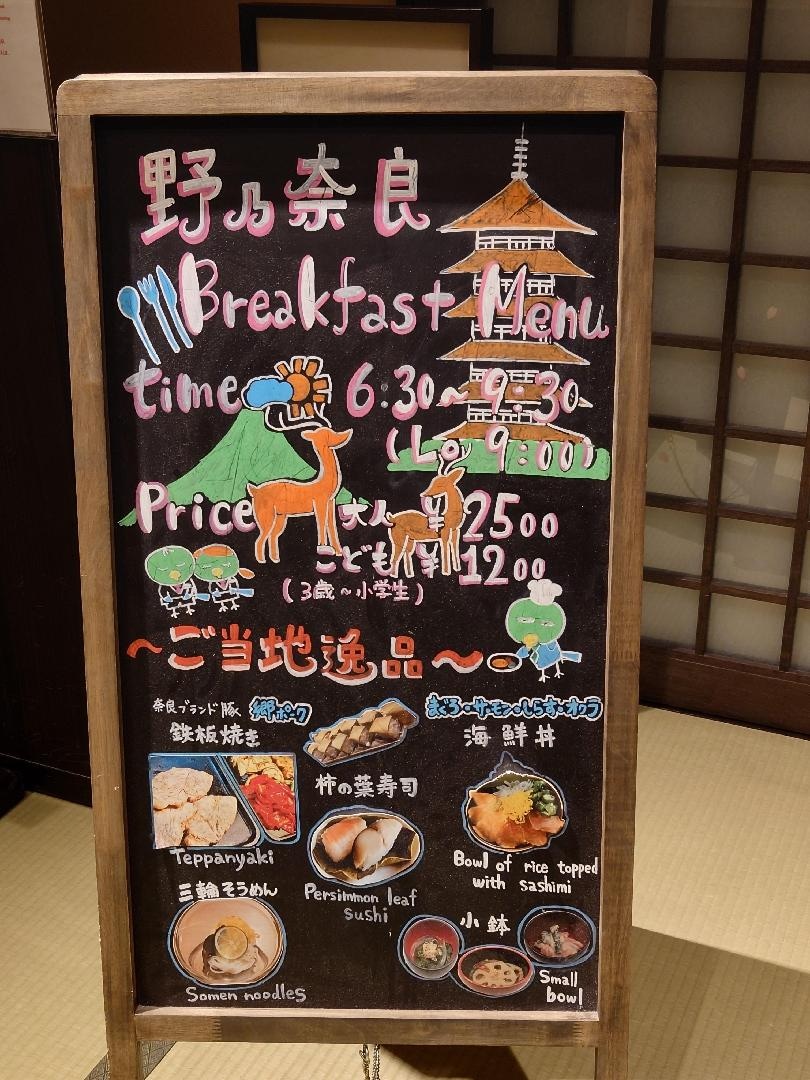 野乃奈良
Breakfast Menu
time 6:30~9:30
(Lo 9:00)
Price 大人 ¥2500
こども ¥1200
(3歳～小学生)
～ご当地逸品～
奈良ブランド豚 郷ポーク
鉄板焼き
Teppanyaki
柿の葉寿司
Persimmon leaf
sushi
まぐろ・サーモン・しらす・オクラ
海鮮丼
Bowl of rice topped
with sashimi
三輪そうめん
Somen noodles
小鉢
Small
bowl